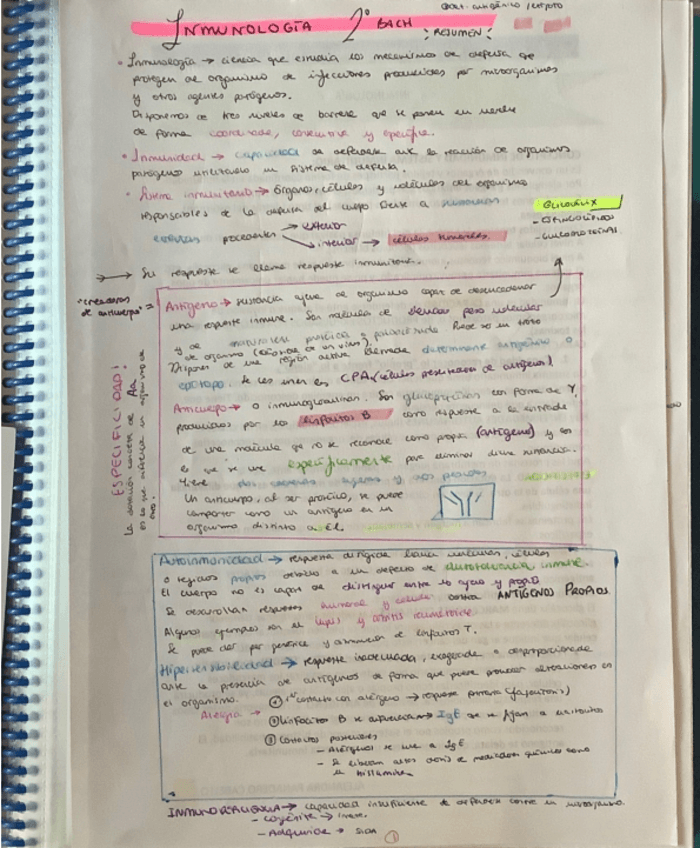 INMUNOLOGÍA 2º BACH
¡RESUMEN!
• Inmunología → ciencia que estudia los mecanismos de defensa que
protegen al organismo de infecciones producidas por microorganismos
y otros agentes patógenos.
Disponemos de tres niveles de barrera que se ponen en marcha
de forma coordinada, conjunta y específica.
• Inmunidad → capacidad de defenderse ante la reacción de organismos
patógenos utilizando un sistema de defensa.
• Sistema inmunitario → órganos, células y moléculas del organismo
responsables de la defensa del cuerpo frente a sustancias
extrañas procedentes → exterior
→ interior → células tumorales.
GLICOCÁLIX
- ESFINGOLÍPIDOS
- GLUCOPROTEÍNAS
→ Su respuesta se llama respuesta inmunitaria.
"creadores de anticuerpo" =
Antígeno → sustancia ajena al organismo capaz de desencadenar
una respuesta inmune. Son moléculas de elevado peso molecular
y de naturaleza proteica o polisacárida. Puede ser un trozo
de organismo (cápside de un virus).
Dispone de una región activa llamada determinante antigénico o
epítopo. Se les unen las CPA (células presentadoras de antígenos)
Anticuerpo → o inmunoglobulinas. Son glucoproteínas con forma de Y,
producidas por los linfocitos B como respuesta a la entrada
de una molécula que no se reconoce como propia (antígeno) y con
la que se une específicamente para eliminar dicha sustancia.
Tiene dos cadenas ligeras y dos pesadas
Un anticuerpo, al ser proteico, se puede
comportar como un antígeno en un
organismo distinto a él.
ESPECIFICIDAD!
Autoinmunidad → respuesta dirigida hacia moléculas, células
o tejidos propios debido a un defecto de autotolerancia inmune.
El cuerpo no es capaz de distinguir entre lo ajeno y propio
Se desarrollan respuestas humoral y celular contra ANTÍGENOS PROPIOS
Algunos ejemplos son el lupus y artritis reumatoide.
Se puede dar por genética y alteración de linfocitos T.
Hipersensibilidad → respuesta inadecuada, exagerada o desproporcionada
ante la presencia de antígenos de forma que puede provocar alteraciones en
el organismo.
Alergia → ① 1er contacto con alérgeno → respuesta primaria (fagocitosis)
② Linfocitos B se → IgE que se fijan a mastocitos
③ Contactos posteriores
- Alérgenos se une a IgE
- Se liberan altas dosis de mediadores químicos como
la histamina
INMUNODEFICIENCIA → capacidad insuficiente de defensa contra un
- Congénita →
- Adquirida → SIDA
①